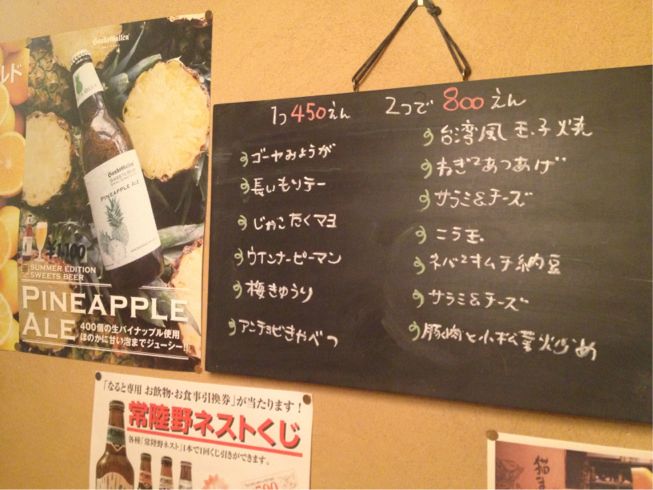 ルド
SankaGallen
PINEAPPLE ALE
SUMMER EDITION
SWEETS BEER
PINEAPPLE
ALE
400個の生パイナップル使用
ほのかに甘い泡までジューシー!!
1つ450えん 2つで800えん
ゴーヤみょうが
長いもソテー
じゃこたくマヨ
ウインナーピーマン
梅きゅうり
アンチョビきゃべつ
台湾風玉子焼
ねぎ あつあげ
サラミ&チーズ
ニラ玉
ネバネキムチ納豆
サラミ&チーズ
豚肉と小松菜炒め
「なると専用 お飲物・お食事引換券」が当たります!
常陸野ネストくじ
各種「常陸野ネスト」1本で1回くじ引きができます。
500
猫